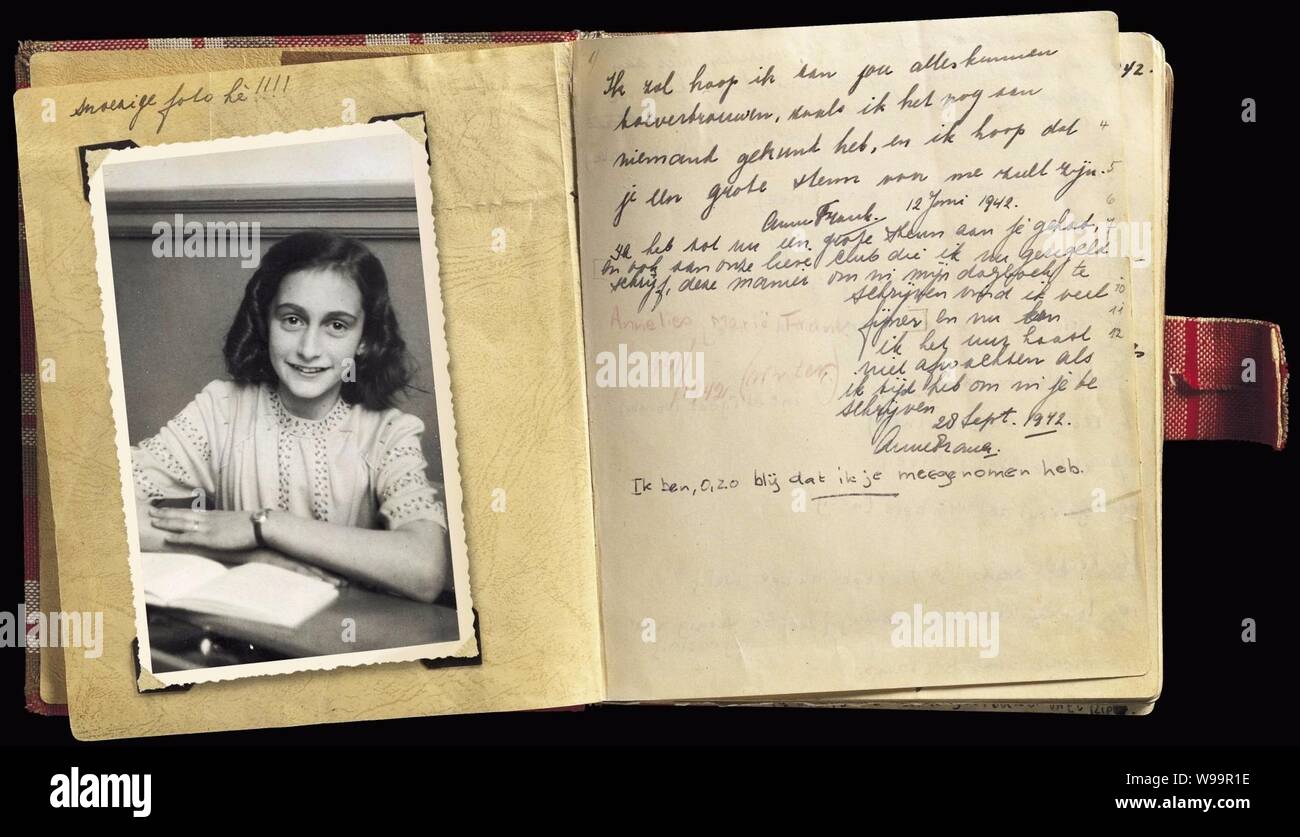 snoezige foto hè!!!!
Ik zal hoop ik aan jou alles kunnen
toevertrouwen, zoals ik het nog aan
niemand gekund heb, en ik hoop dat
je een grote steun van me zult zijn.
Anne Frank. 12 Juni 1942.
Ik heb tot nu een grote steun aan je gehad,
en ook aan onze lieve club die ik nu geregeld
schrijf, deze manier om in mijn dagboek te
schrijven vind ik veel
fijner en nu kan
ik het uur haast
niet afwachten als
ik tijd heb om in je te
schrijven
28 Sept. 1942.
Anne Frank.
Ik ben, o, zo blij dat ik je meegenomen heb.
Annelies, Marie, Frank
42.
4
5
6
7
10
11
12
alamy
Image ID: W99R1E
www.alamy.com